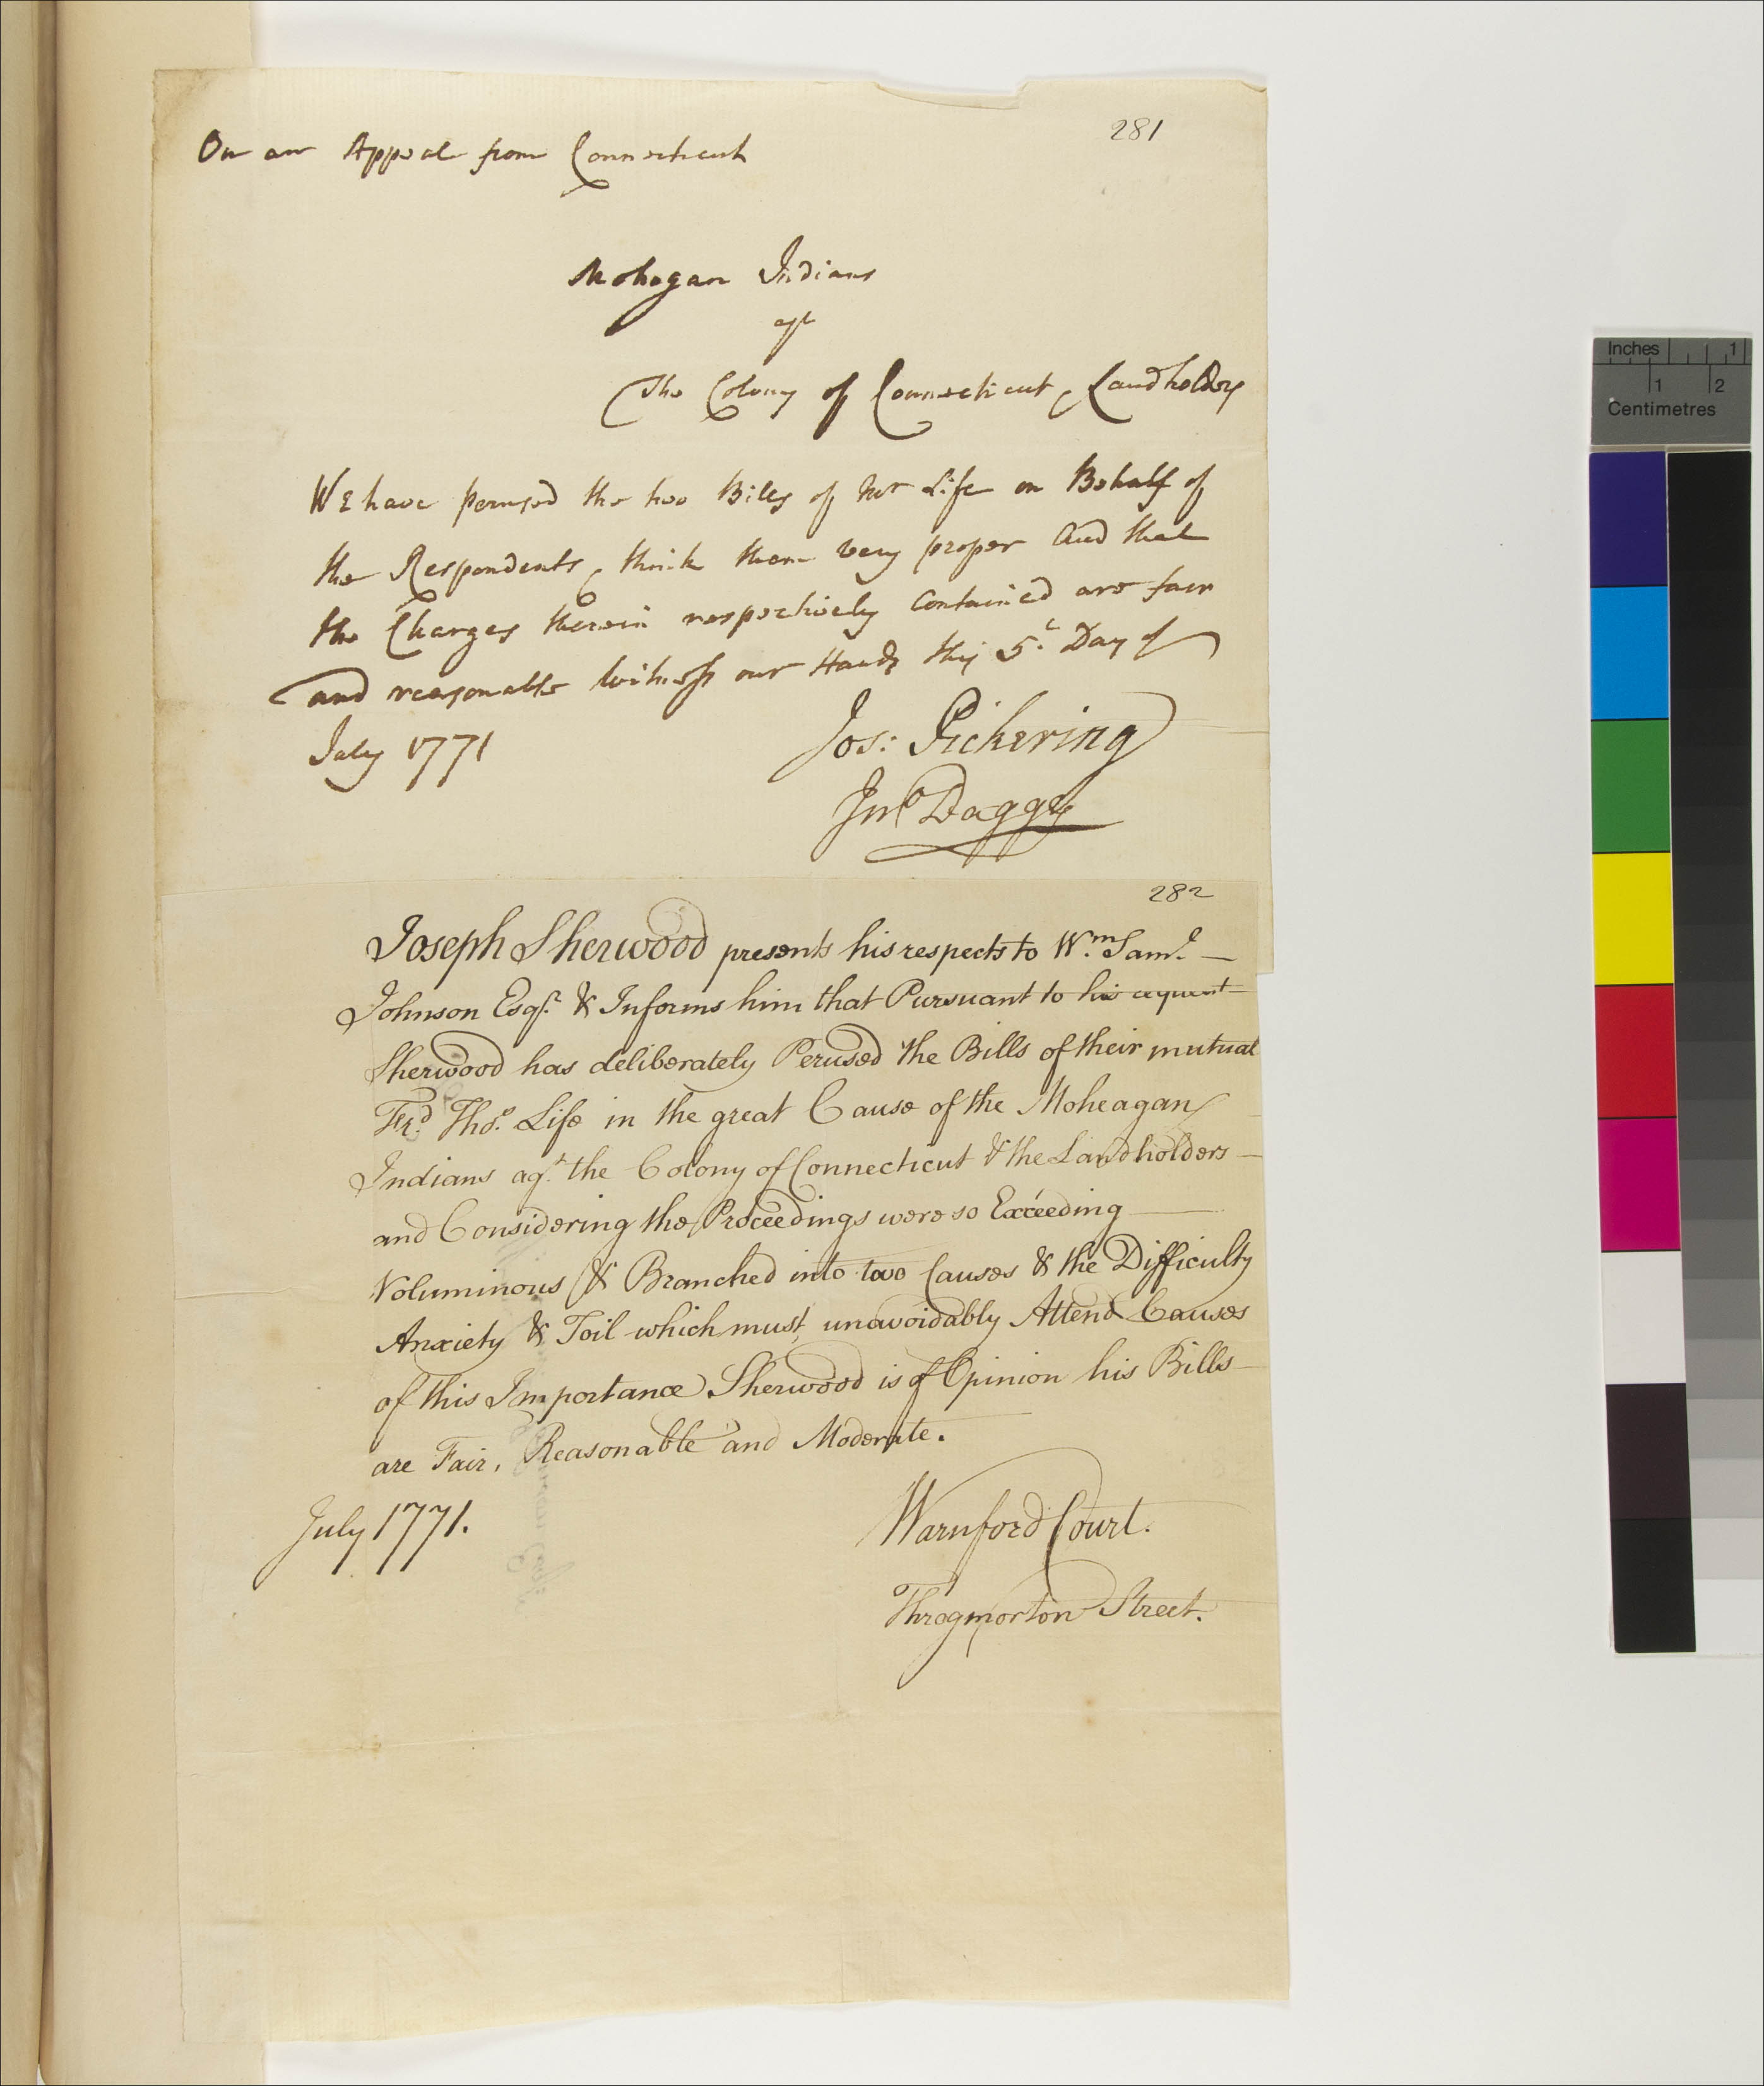 281
On an Appeal from Connecticut
Mohegan Indians
agt
The Colony of Connecticut & Landholders
We have perused the two Bills of Mr Life on Behalf of
the Respondents & think them very proper and that
the Charges therein respectively contained are fair
and reasonable Witness our Hands this 5t. Day of
July 1771
Jos: Pickering
Jno Daggs
282
Joseph Sherwood presents his respects to Wm. Saml. —
Johnson Esqr. & Informs him that Pursuant to his
Sherwood has deliberately Perused the Bills of their mutual
Frd. Thos. Life in the great Cause of the Moheagan
Indians agt. the Colony of Connecticut & the Landholders —
and Considering the Proceedings were so Exceeding —
Voluminous & Branched into two Causes & the Difficulty
Anxiety & Toil which must unavoidably Attend Causes
of this Importance Sherwood is of Opinion his Bills —
are Fair, Reasonable and Moderate.
July 1771.
Warnford Court.
Throgmorton Street.
Inches 1
1 2
Centimetres